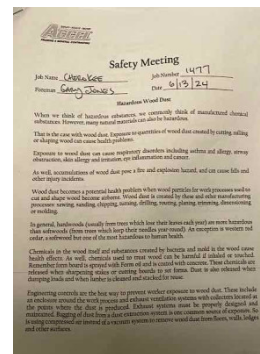 Safety Meeting
Job Name CHEROKEE
Job Number 1477
Foreman GARY JONES
Date 6/13/24
Hazardous Wood Dust
When we think of hazardous substances, we commonly think of manufactured chemical
substances. However, many natural materials can also be hazardous.
That is the case with wood dust. Exposure to quantities of wood dust created by cutting, milling
or shaping wood can cause health problems.
Exposure to wood dust can cause respiratory disorders including asthma and allergy, airway
obstruction, skin allergy and irritation, eye inflammation and cancer.
As well, accumulations of wood dust pose a fire and explosion hazard, and can cause falls and
other injury incidents.
Wood dust becomes a potential health problem when wood particles for work processes used to
cut and shape wood become airborne. Wood dust is created by these and other manufacturing
processes: sawing, sanding, chipping, turning, drilling, routing, planing, trimming, dimensioning
or molding.
In general, hardwoods (usually from trees which lose their leaves each year) are more hazardous
than softwoods (from trees which keep their needles year-round). An exception is western red
cedar, a softwood but one of the most hazardous to human health.
Chemicals in the wood itself and substances created by bacteria and mold in the wood cause
health effects. As well, chemicals used to treat wood can be harmful if inhaled or touched.
Remember form board is sprayed with Form oil and is coated with concrete. These chemicals are
released when sharpening stakes or cutting boards to no forms. Dust is also released when
dumping loads and when lumber is cleaned and stacked for reuse.
Engineering controls are the best way to prevent worker exposure to wood dust. These include
an enclosure around the work process and exhaust ventilation systems with collectors located at
the points where the dust is produced. Exhaust systems must be properly designed and
maintained. Bagging of dust from a dust extraction system is one common source of exposure. So
is using compressed air instead of a vacuum system to remove wood dust from floors, walls, ledges
and other surfaces.